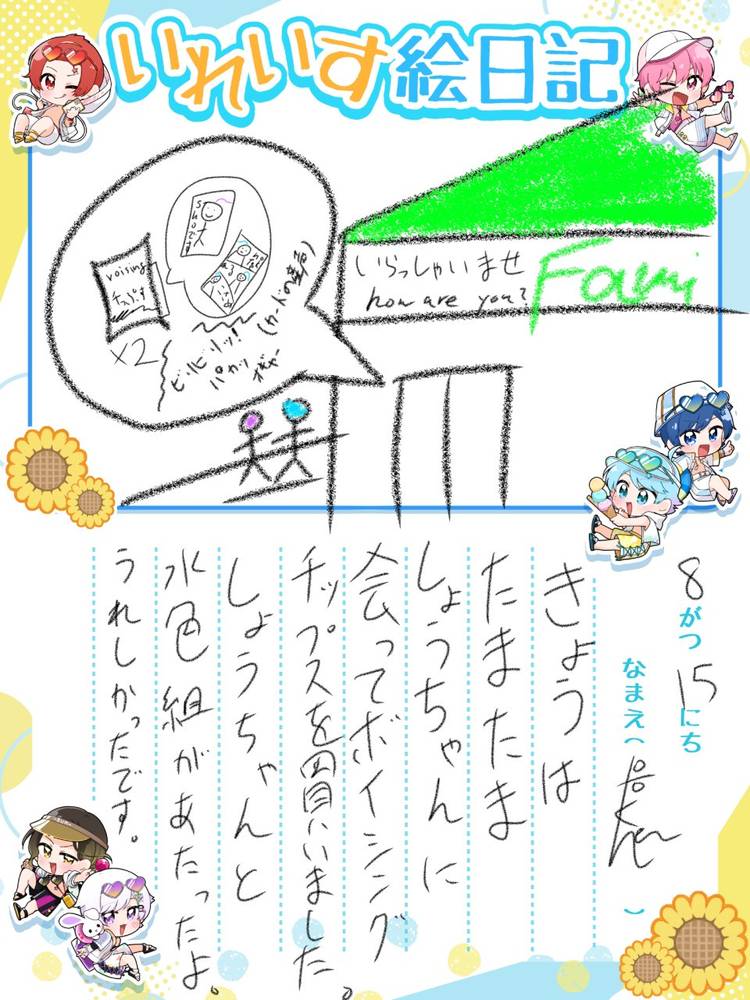 いれいす絵日記
いらっしゃいませ
how are you?
Fami
voising
チップス
×2
ビリビリッ!
(カードの束る)
8がつ15にち
なまえ(
)
きょうは
たまたま
しょうちゃんに
会ってボイシング
チップスを買いました。
しょうちゃんと
水色組があたったよ。
うれしかったです。